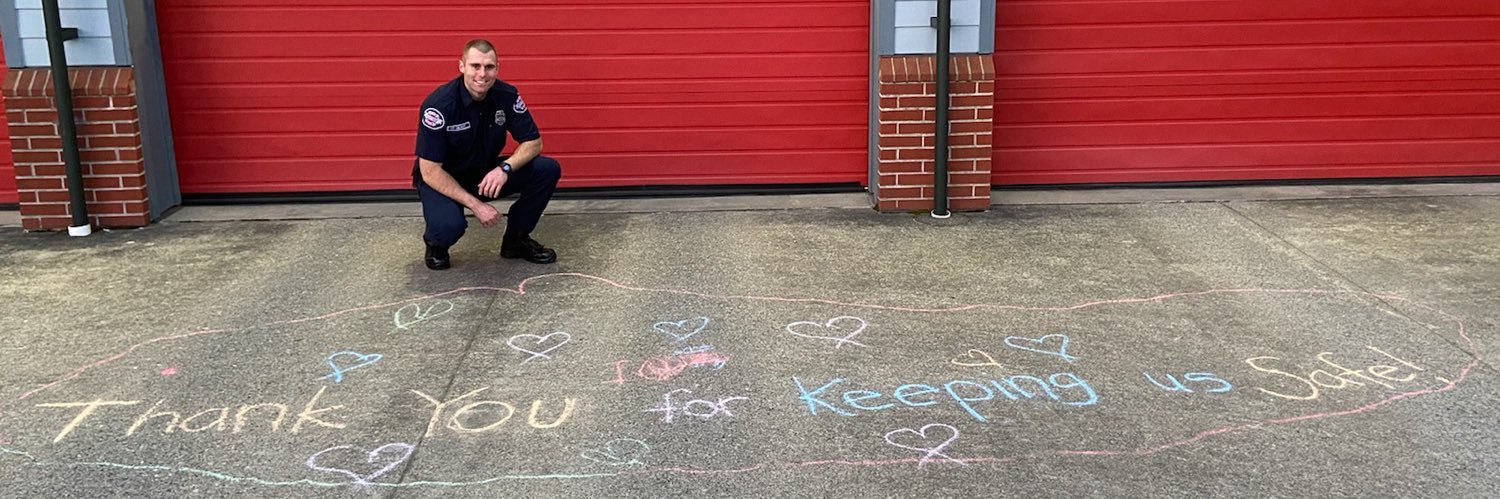 Thank You for Keeping us Safe!